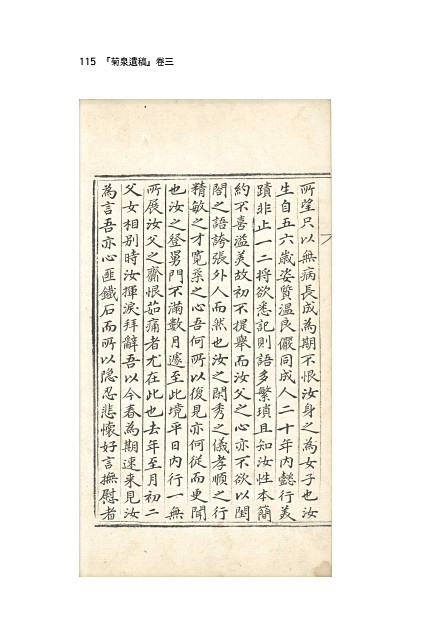 115 『菊泉遺稿』卷三
所望只以無病長成為期不恨汝身之為女子也汝
生自五六歲姿質溫良儼同成人二十年內懿行美
蹟非止一二將欲悉記則語多繁瑣且知汝性本簡
約不喜溢美故初不提舉而汝父之心亦不欲以閨
閤之語誇張外人而然也汝之閑秀之儀孝順之行
精敏之才寬柔之心吾何所以復見亦何從而更聞
也汝之登舅門不滿數月遽至此境平日內行一無
所展汝父之齎恨茹痛者尤在此也去年至月初二
父女相別時汝揮淚拜辭吾以今春為期速來見汝
為言吾亦心匪鐵石而所以隐忍悲懷好言撫慰者